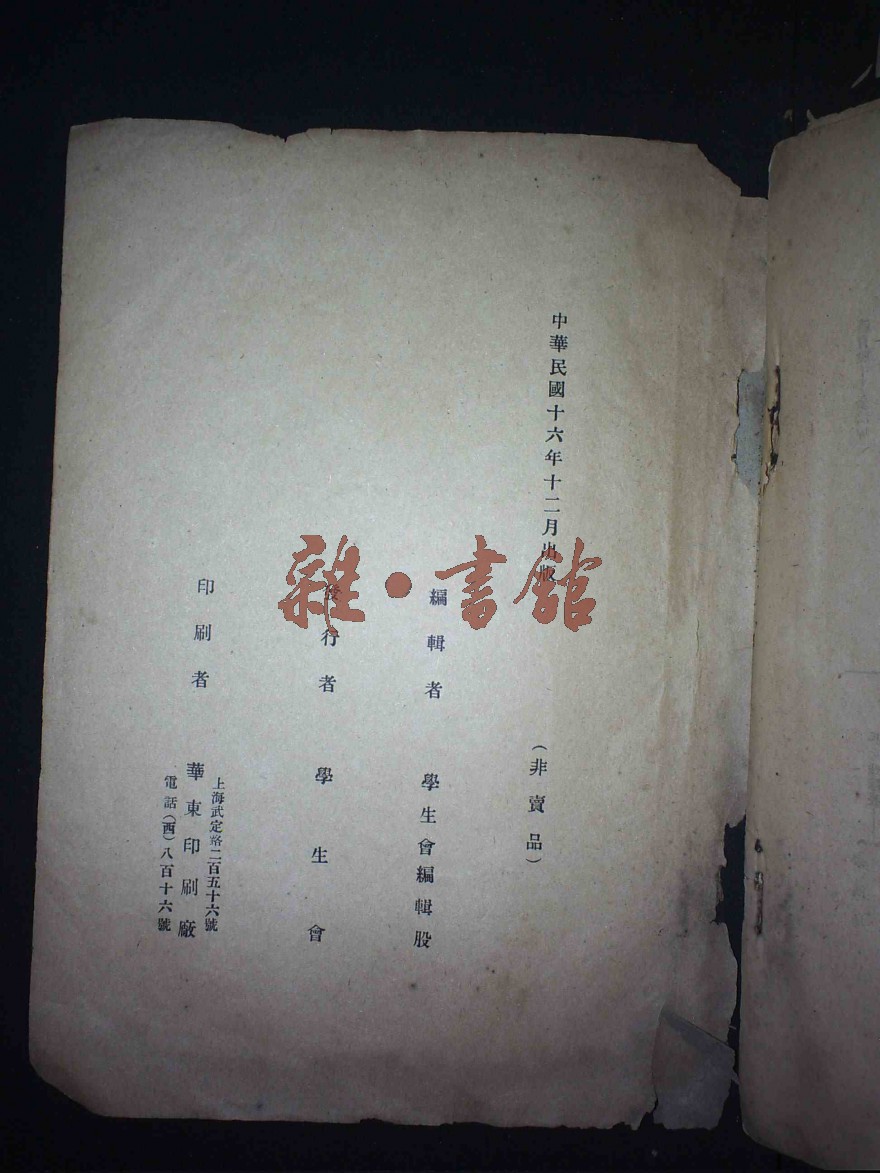 中華民國十六年十二月出版
(非賣品)
編輯者 學生會編輯股
發行者 學生會
印刷者 華東印刷廠
上海武定路二百五十六號
電話(西)八百十六號
雜·書館